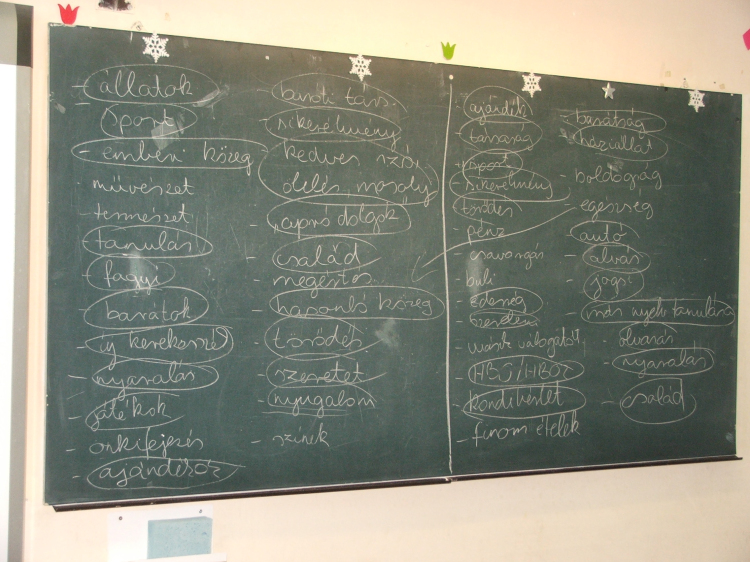 - állatok
- sport
- emberi közeg
- művészet
- természet
- tanulás
- fagyi
- barátok
- új kerékpár
- nyaralás
- játékok
- önkifejezés
- ajándékok
- baráti társ.
- sikerélmény
- kedves szó,
ölelés, mosoly
- "apró dolgok"
- család
- megértés
- hasonló közeg
- törődés
- szeretet
- nyugalom
- színek
- ajándék
- társaság
- sport
- sikerélmény
- törődés
- pénz
- csavargás
- buli
- édesség
- szerelem
- HBO
- kondibérlet
- finom ételek
- barátság
- háziállat
- boldogság
- egészség
- autó
- alvás
- jogsi
- más nyelv tanulása
- olvasás
- nyaralás
- család